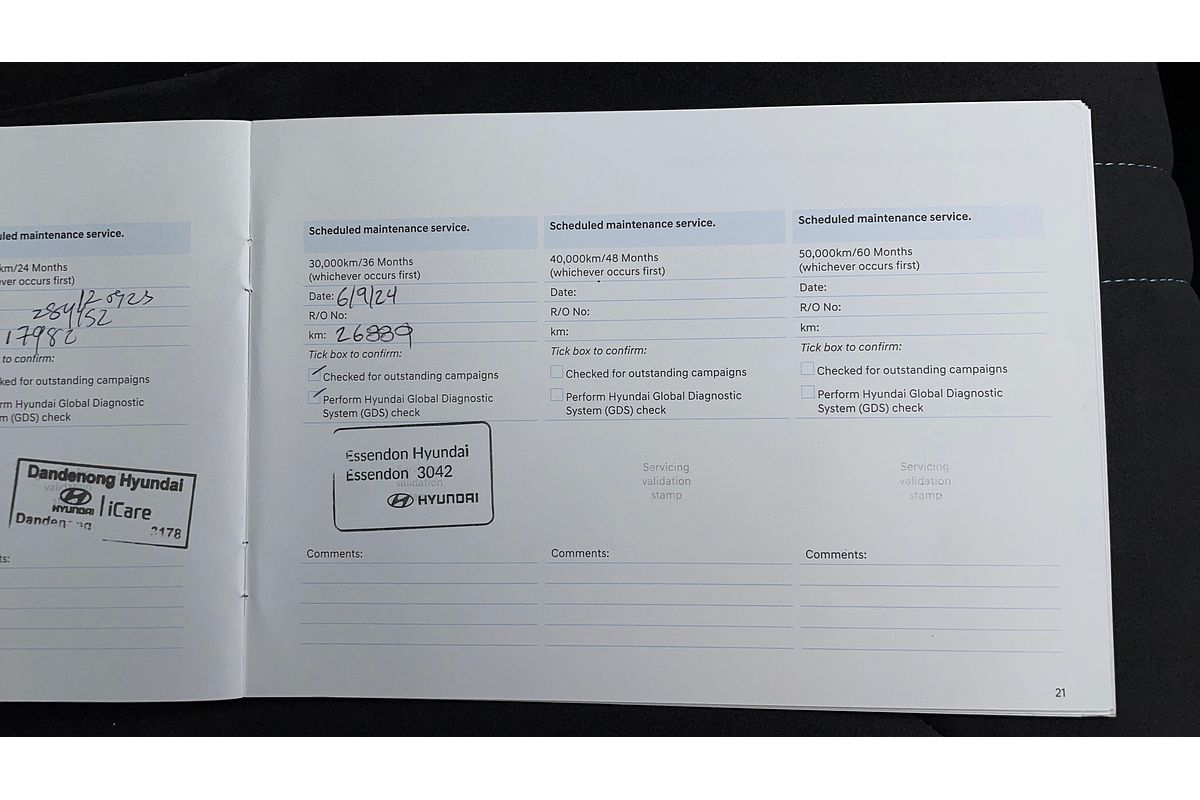 uled maintenance service.
km/24 Months
ever occurs first)
17982
to confirm:
ked for outstanding campaigns
rm Hyundai Global Diagnostic
m (GDS) check
Dandenong Hyundai
HYUNDAI
iCare
3178
ts:
Scheduled maintenance service.
30,000km/36 Months
(whichever occurs first)
Date: 6/9/24
R/O No:
km: 26889
Tick box to confirm:
Checked for outstanding campaigns
Perform Hyundai Global Diagnostic
System (GDS) check
Essendon Hyundai
Essendon 3042
validation
HYUNDAI
Comments:
Scheduled maintenance service.
40,000km/48 Months
(whichever occurs first)
Date:
R/O No:
km:
Tick box to confirm:
Checked for outstanding campaigns
Perform Hyundai Global Diagnostic
System (GDS) check
Servicing
validation
stamp
Comments:
Scheduled maintenance service.
50,000km/60 Months
(whichever occurs first)
Date:
R/O No:
km:
Tick box to confirm:
Checked for outstanding campaigns
Perform Hyundai Global Diagnostic
System (GDS) check
Servicing
validation
stamp
Comments:
21